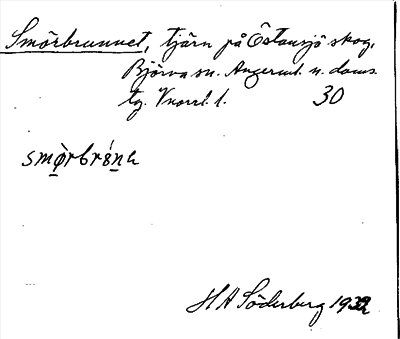 Smörbrunnet, tjärn på Östansjö skog,
Björna sn. Ångerml. n. doms.
tg. Vnorrl. l. 30
smörbrøna
H A Söderberg 1932